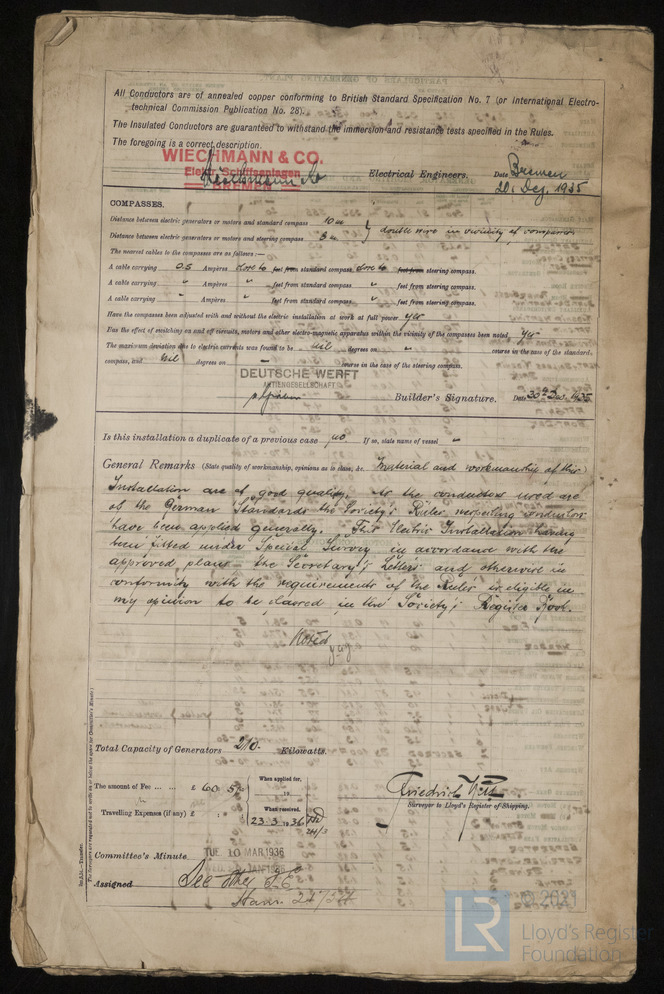 All Conductors are of annealed copper conforming to British Standard Specification No. 7 (or International Electro-
technical Commission Publication No. 28).
The Insulated Conductors are guaranteed to withstand the immersion and resistance tests specified in the Rules.
The foregoing is a correct description.
WIECHMANN & CO.
Elektr. Schiffsanlagen
BREMEN
Electrical Engineers. Date Bremen
20. Dez. 1935
COMPASSES.
Distance between electric generators or motors and standard compass 10 m
Distance between electric generators or motors and steering compass 8 m } double wire in vicinity of compasses
The nearest cables to the compasses are as follows:—
A cable carrying 0.5 Ampères close to feet from standard compass, close to feet from steering compass.
A cable carrying " Ampères " feet from standard compass " feet from steering compass.
A cable carrying " Ampères " feet from standard compass " feet from steering compass.
Have the compasses been adjusted with and without the electric installation at work at full power yes
Has the effect of switching on and off circuits, motors and other electro-magnetic apparatus within the vicinity of the compasses been noted yes
The maximum deviation due to electric currents was found to be nil degrees on " course in the case of the standard
compass, and nil degrees on — course in the case of the steering compass.
DEUTSCHE WERFT
AKTIENGESELLSCHAFT
Builder's Signature. Date 30th Dec. 1935
Is this installation a duplicate of a previous case no If so, state name of vessel "
General Remarks (State quality of workmanship, opinions as to class, &c. Material and workmanship of this
Installation are of good quality. As the conductors used are
of the German Standards the Society's Rules respecting conductors
have been applied generally. This Electric Installation having
been fitted under Special Survey in accordance with the
approved plans the Secretary's letters and otherwise in
conformity with the requirements of the Rules is eligible in
my opinion to be classed in the Society's Register Book.
Noted
Total Capacity of Generators 210. Kilowatts.
The amount of Fee ... ... £ 60 5
When applied for,
19
Travelling Expenses (if any) £ : :
When received.
23.3.1936
24/3
Friedrich
Surveyor to Lloyd's Register of Shipping.
Committee's Minute TUE. 10 MAR 1936
Assigned See other
The Surveyors are requested not to write on or below the space for Committee's Minute.
Lloyd's Register
Foundation
LR